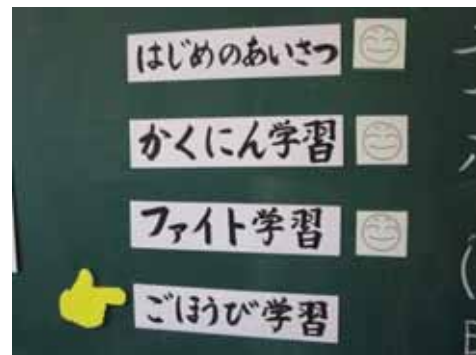 はじめのあいさつ
かくにん学習
ファイト学習
ごほうび学習